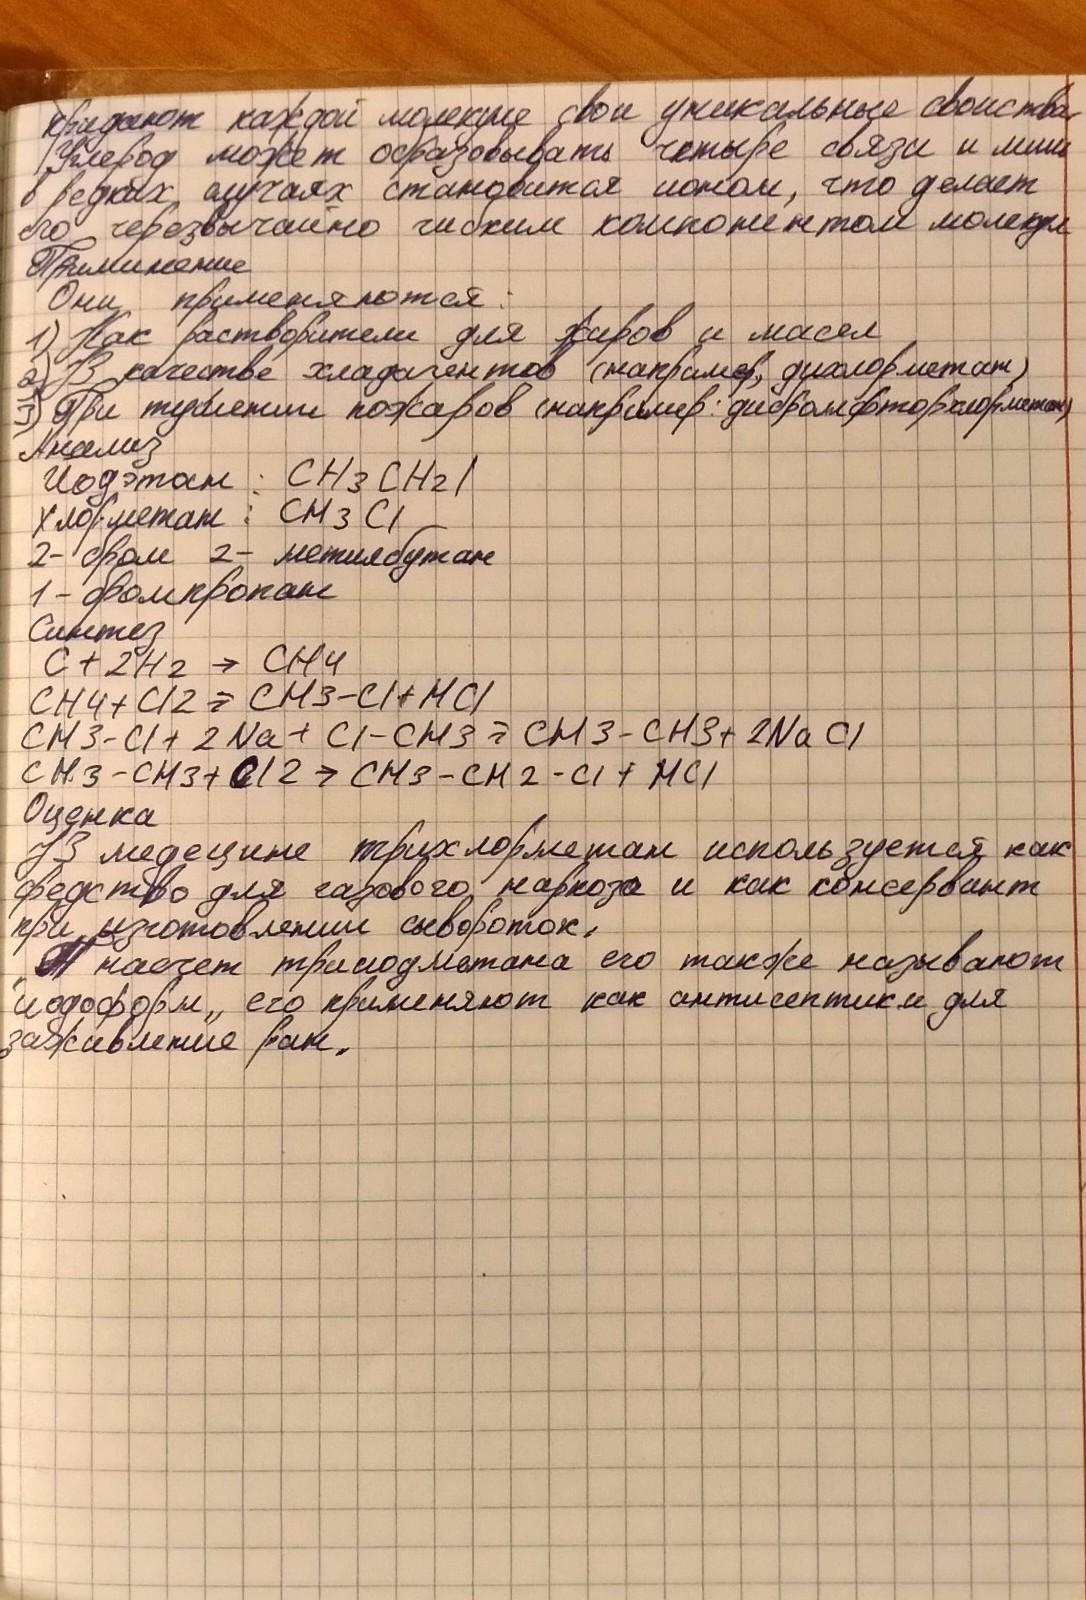 придают каждой молекуле свои уникальные свойства.
Углерод может образовывать четыре связи и лишь
в редких случаях становится ионом, что делает
его черезвычайно гибким компонентом молекул
Приминение
Они применяются:
1) Как растворители для жиров и масел
2) В качестве хладагентов (например, дихлорметан)
3) При тушении пожаров (например: дибромфторхлорметан)
Анализ
Йодэтан: CH3CH2I
Хлорметан: CH3Cl
2-бром 2-метилбутан
1-бромпропан
Синтез
C+2H2 → CH4
CH4+Cl2 → CH3-Cl+HCl
CH3-Cl+2Na+Cl-CH3 → CH3-CH3+2NaCl
CH3-CH3+Cl2 → CH3-CH2-Cl+HCl
Оценка
В медецине трихлорметан используется как
средство для газового наркоза и как консервант
при изготовлении сывороток.
насчет трииодметана его также называют
"иодоформ„ его применяют как антисептики для
заживление ран.